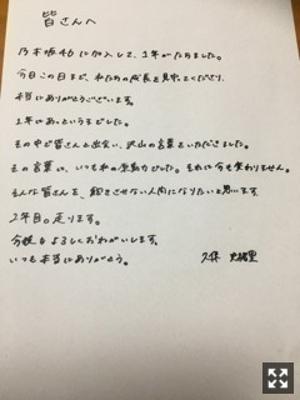 皆さんへ
乃木坂46に加入して、1年がたちました。
今日この日まで、私たちの成長を見守ってくださり、
本当にありがとうございます。
1年はあっというまでした。
その中で皆さんと出会い、沢山の言葉をいただきました。
その言葉は、いつも私の原動力でした。それは今も変わりません。
そんな皆さんを、飽きさせない人間になりたいと思います。
2年目。走ります。
今後もよろしくおねがいします。
いつも本当にありがとう。
久保 史緒里